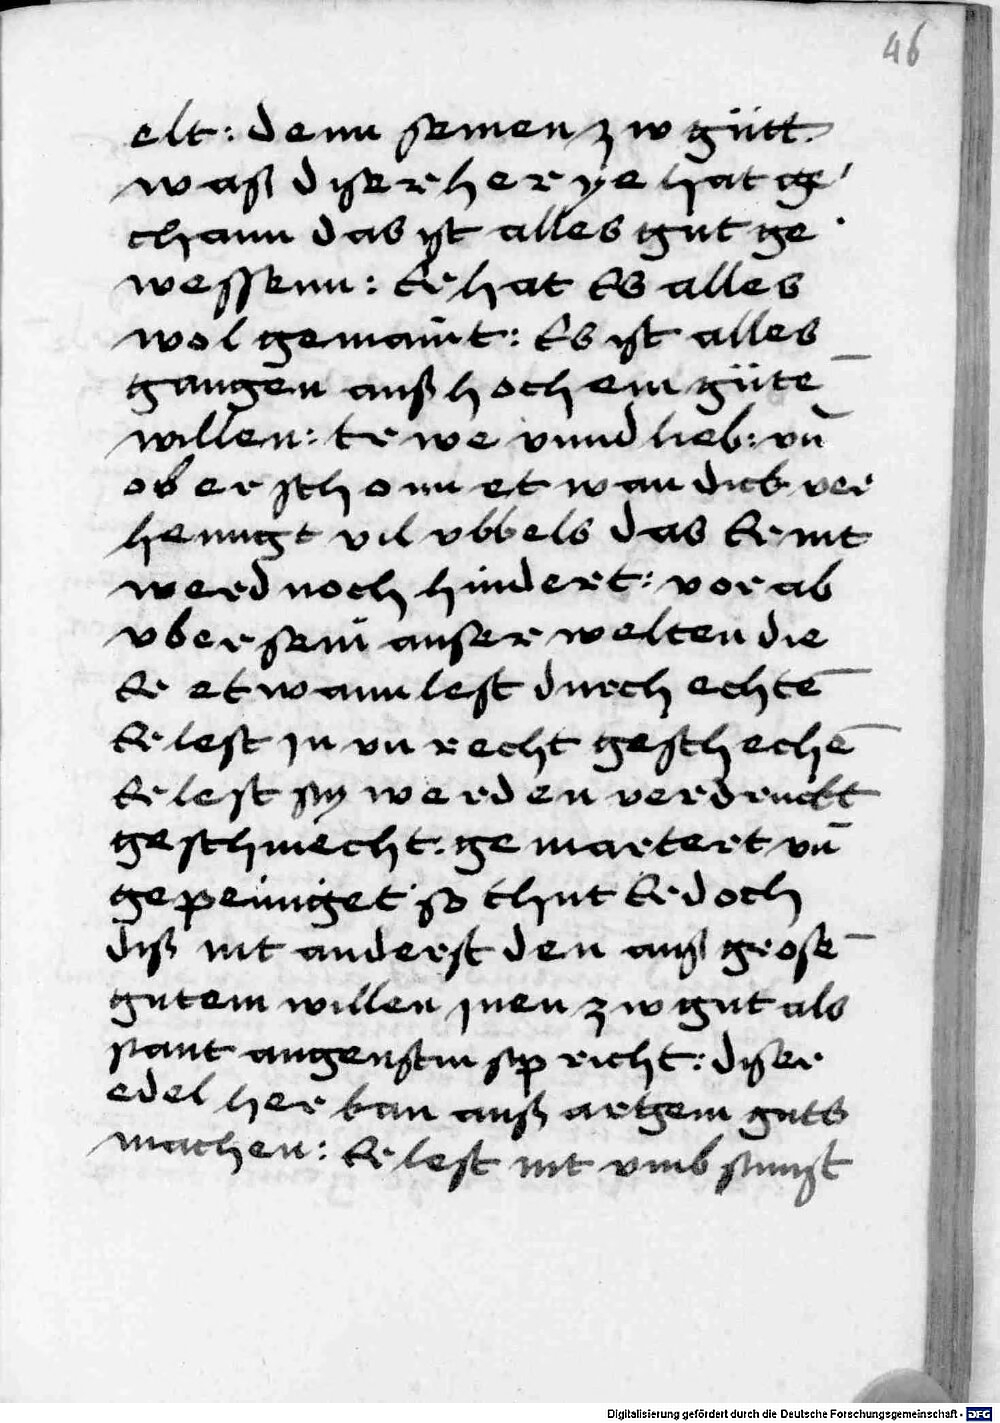 46
elt: denn seinen zw gütt.
waß diser her ye hat ge
thann das yst alles gut ge
wessenn: Er hat Es alles
wol gemaint: Es ist alles
gangen auß hochem gütē
willen: trwe vnnd lieb: vn̄
ob er schonn etwan dick ver
henngt vil vbbels das Er nit
werd noch hindert: vor ab
vber sein auserwelten die
Er etwann lest durchechtē
Er lest jn vnrecht geschechē
Er lest sy werden verdruckt
geschmecht. gemartert vn̄
gepeiniget so thut Er doch
diß nit anderst den auß grosē
gutem willen jnen zw gut als
sant augenstin spricht: diser
edel her kan auß argem guts
machen: Er lest nit vmb sunst
Digitalisierung gefördert durch die Deutsche Forschungsgemeinschaft - DFG